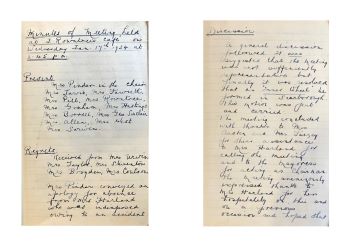 Minutes of Meeting held
at Rowntrees Cafe on
Wednesday Jan. 17th 1934 at
2.45 p.m.
Present
Mrs Pindar in the chair
Mrs Jarvis, Mrs
Mrs Pitt, Mrs Rowntree,
Mrs Graham, Mrs Hastings
Mrs Borrell, Mrs
Mrs Allen, Mrs
Mrs
Regrets
Received from Mrs
Mrs Taylor, Mrs
Mrs Brayden, Mrs
Mrs Pindar conveyed an
apology for absence
from Mrs Harland
who was indisposed
owing to an accident
Discussion
A general discussion
followed it was
suggested that the meeting
was not sufficiently
representative but
finally it was resolved
that an Inner Wheel be
formed in Scarborough
This motion was put
and carried
The meeting concluded
with thanks to Mrs
and Mrs
for their assistance
to Mrs Harland for
calling the meeting
and to the Mayoress
for acting as Chairman
The meeting unanimously
expressed thanks to
Mrs Harland for her
hospitality on this and
on a previous
occasion and hoped that